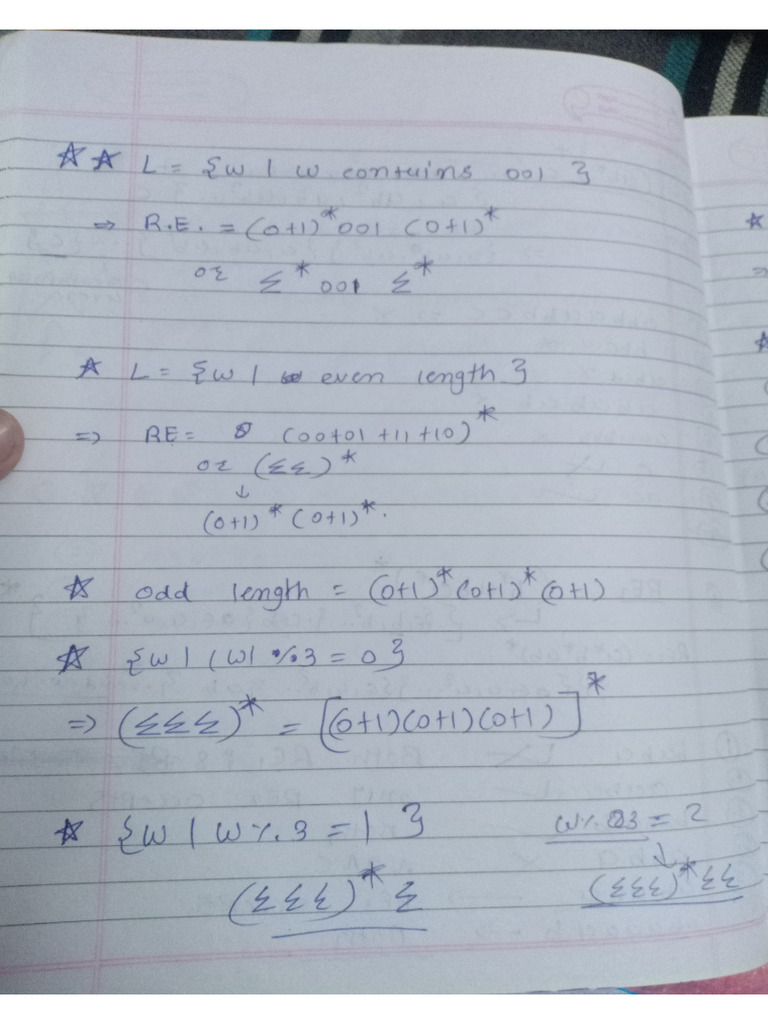 ☆☆ L = {w | w contains 001 }
⇒ R.E. = (0+1)*001 (0+1)*
or Σ*001 Σ*
☆ L = {w | even length }
⇒ RE = (00+01+11+10)*
or (ΣΣ)*
↓
(0+1)* (0+1)*.
☆ odd length = (0+1)*(0+1)*(0+1)
☆ {w | |w| % 3 = 0}
⇒ (ΣΣΣ)* = [(0+1)(0+1)(0+1)]*
☆ {w | w % 3 = 1 } w % 3 = 2
↓
(ΣΣΣ)* Σ (ΣΣΣ)*ΣΣ